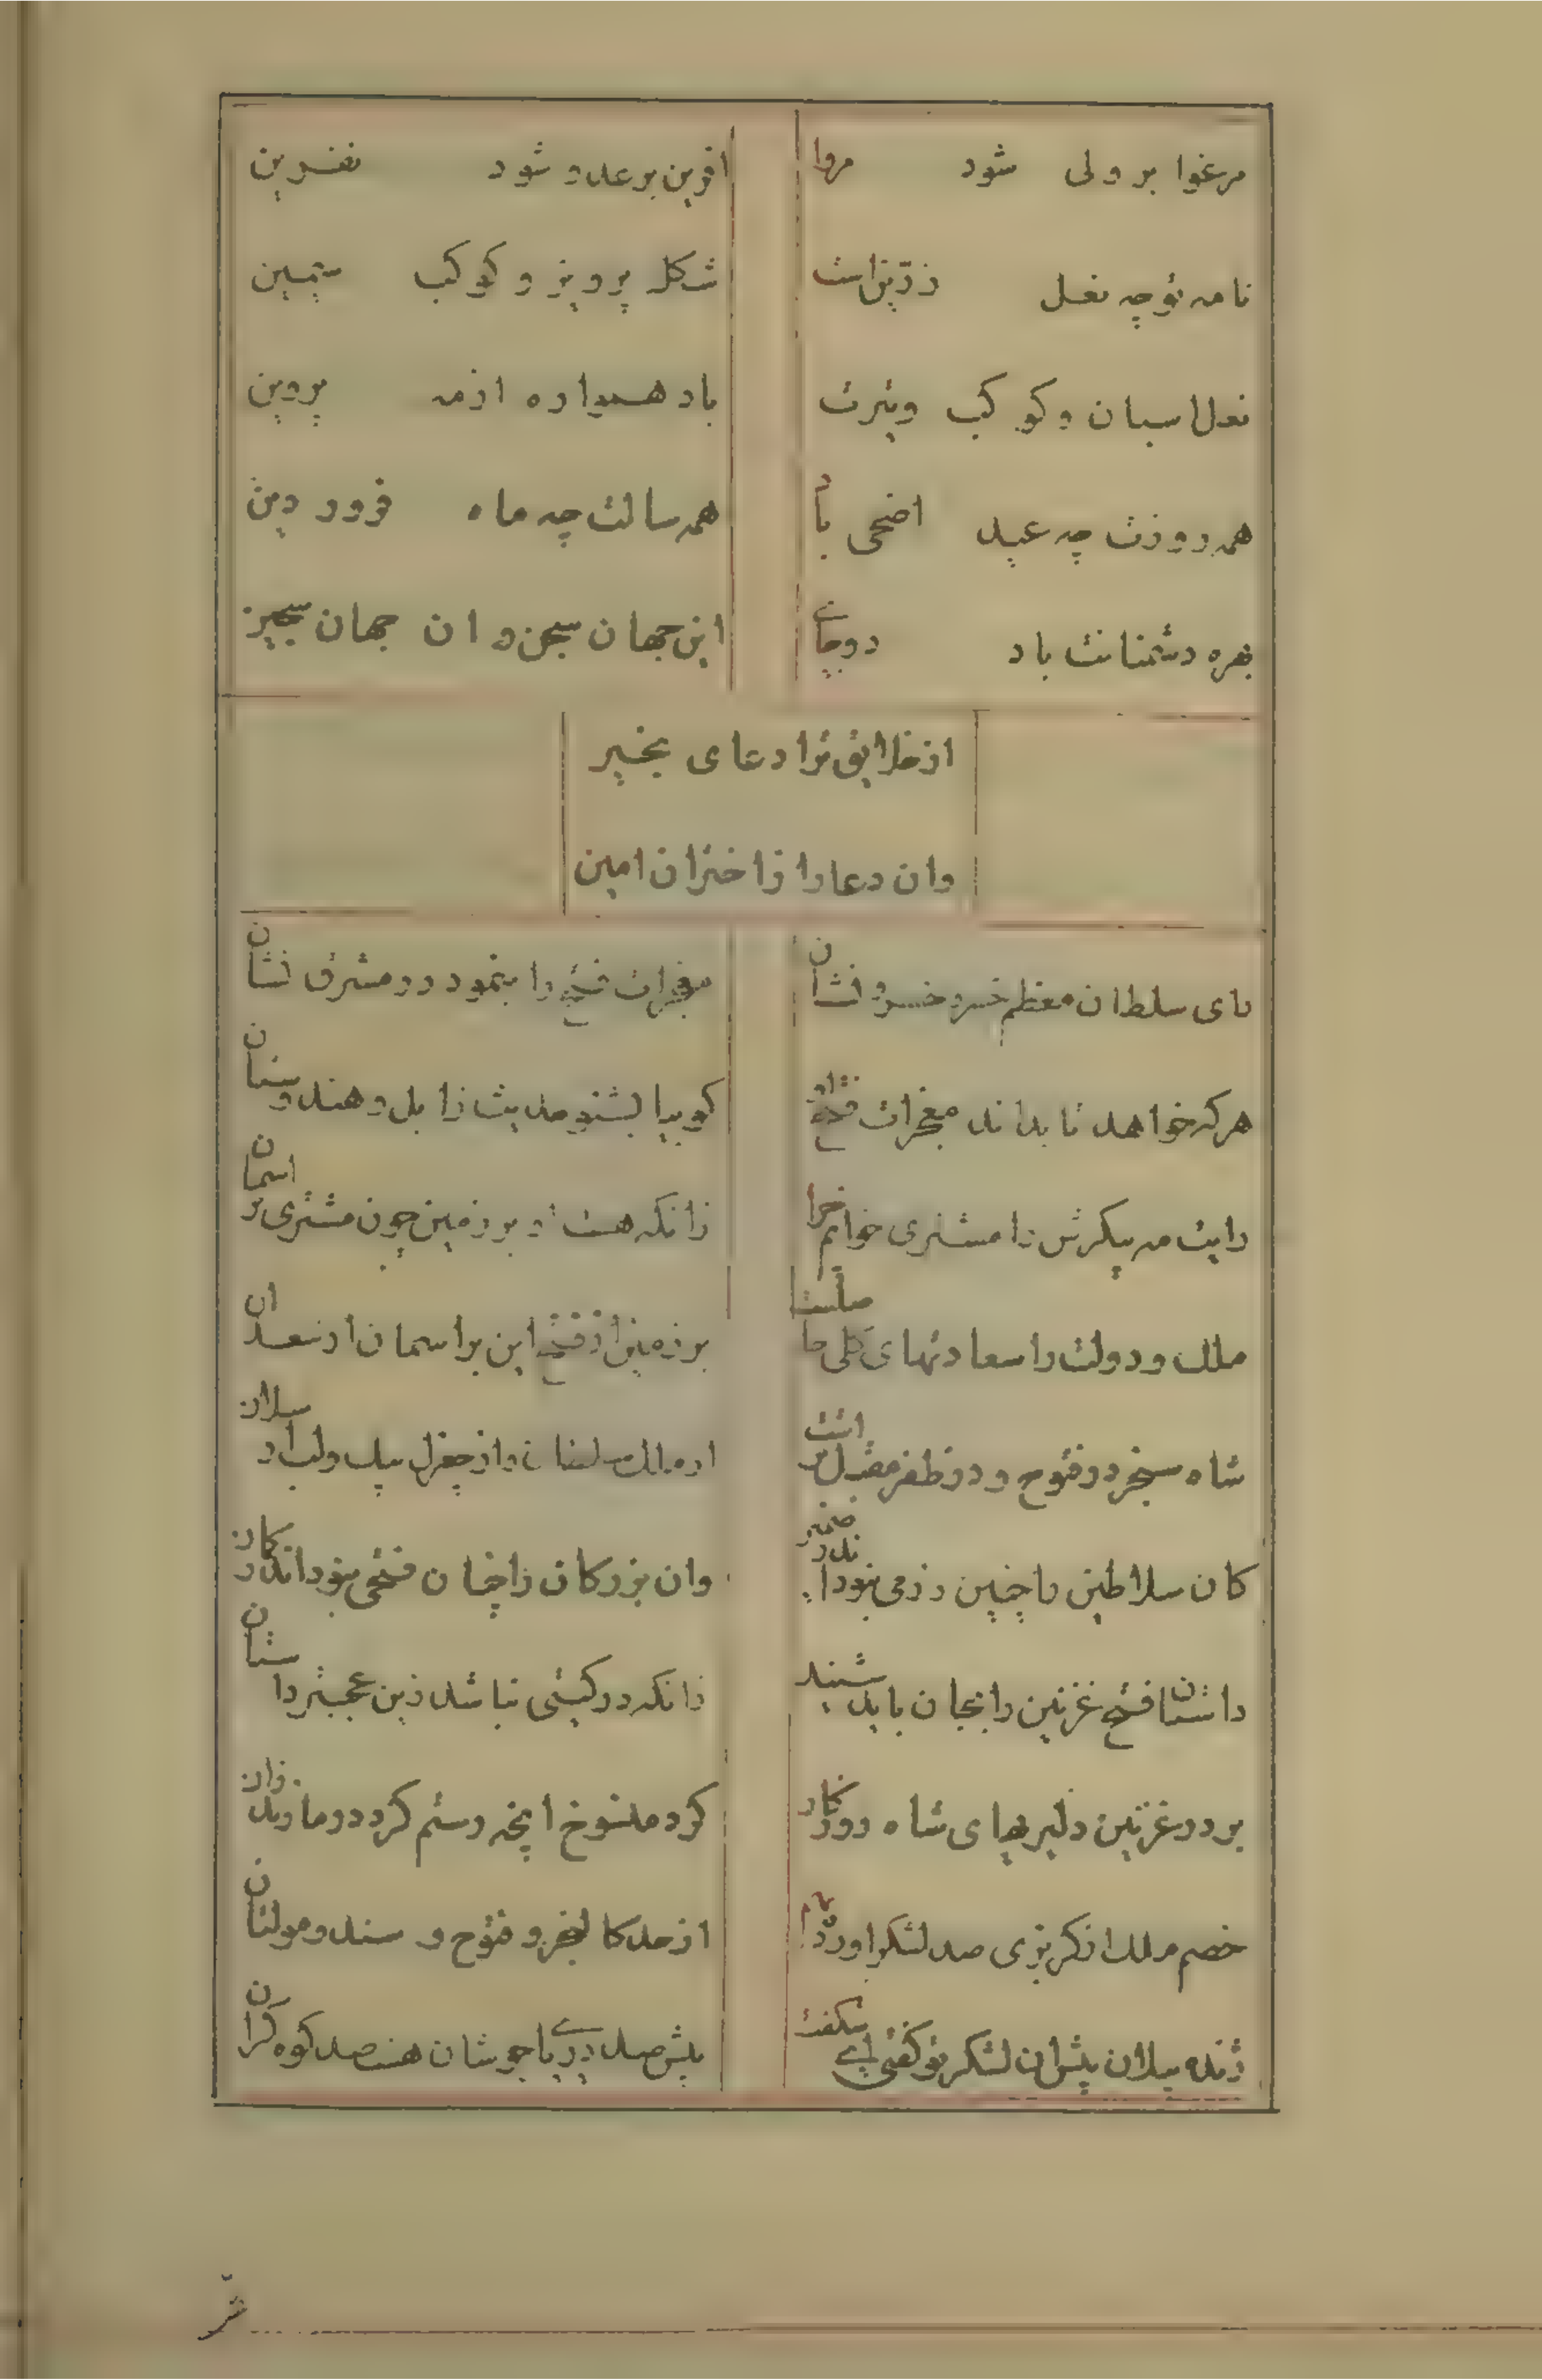 مرغوا بر ولی شود مروا
افرین بر عدو شود نفرین
نامه تو چه نعل زرین است
شکل پروین و کوکب سیمین
نعل اسبان و کوکب
باد همواره از مه پروین
همه روزت چه عید اضحی باد
همه سالت چه ماه فرودین
بهره دشمنانت باد دوجان
این جهان سجن و ان جهان سجین
از خلایق ترا دعای بخیر
وان دعا را ز اختران امین
رای سلطان معظم خسرو خسرو نشان
معجزات فتح را بنمود در مشرق نشان
هر که خواهد تا بداند معجزات فتح
کو بیا بشنو حدیث زابل و هندوستان
رایت مه پیکرش را مشتری خوانم چرا
زانکه هست او بر زمین چون مشتری بر اسمان
ملک و دولت را سعادتهای کلی حاصلست
بر زمین از فتح این بر اسمان از سعد ان
شاه سنجر در فتوح و در ظفر مقبل تر است
از ملک سلطان و از چغرل بیک و الب ارسلان
کان سلاطین را چنین رزمی نبود اندر ضمیر
وان بزرکان را چنان فتحی نبود اندر کمان
داستان فتح غزنین را بجان باید شنید
زانکه در کیتی نباشد زین عجبتر داستان
بر در غزنین دلیریهای شاه روزکار
کرد منسوخ انچه رستم کرد در مازندران
خصم ملک از کربزی صد لشکر اورد
از حد کالنجر و فتوح و سند و مولتان
ژنده پیلان پیش ان لشکر تو کفتی ای شکفت
پیش صد دریا جوشان هست صد کوه کران